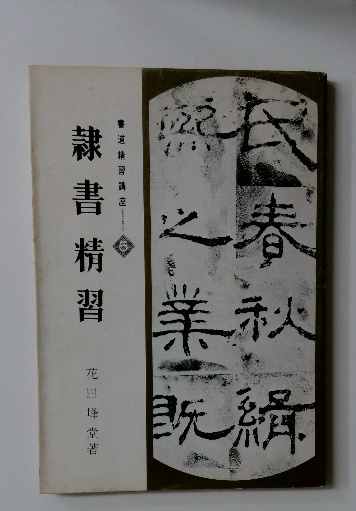 民春秋緝
熈之業既
書道精習講座
隷書精習
花田峰堂著